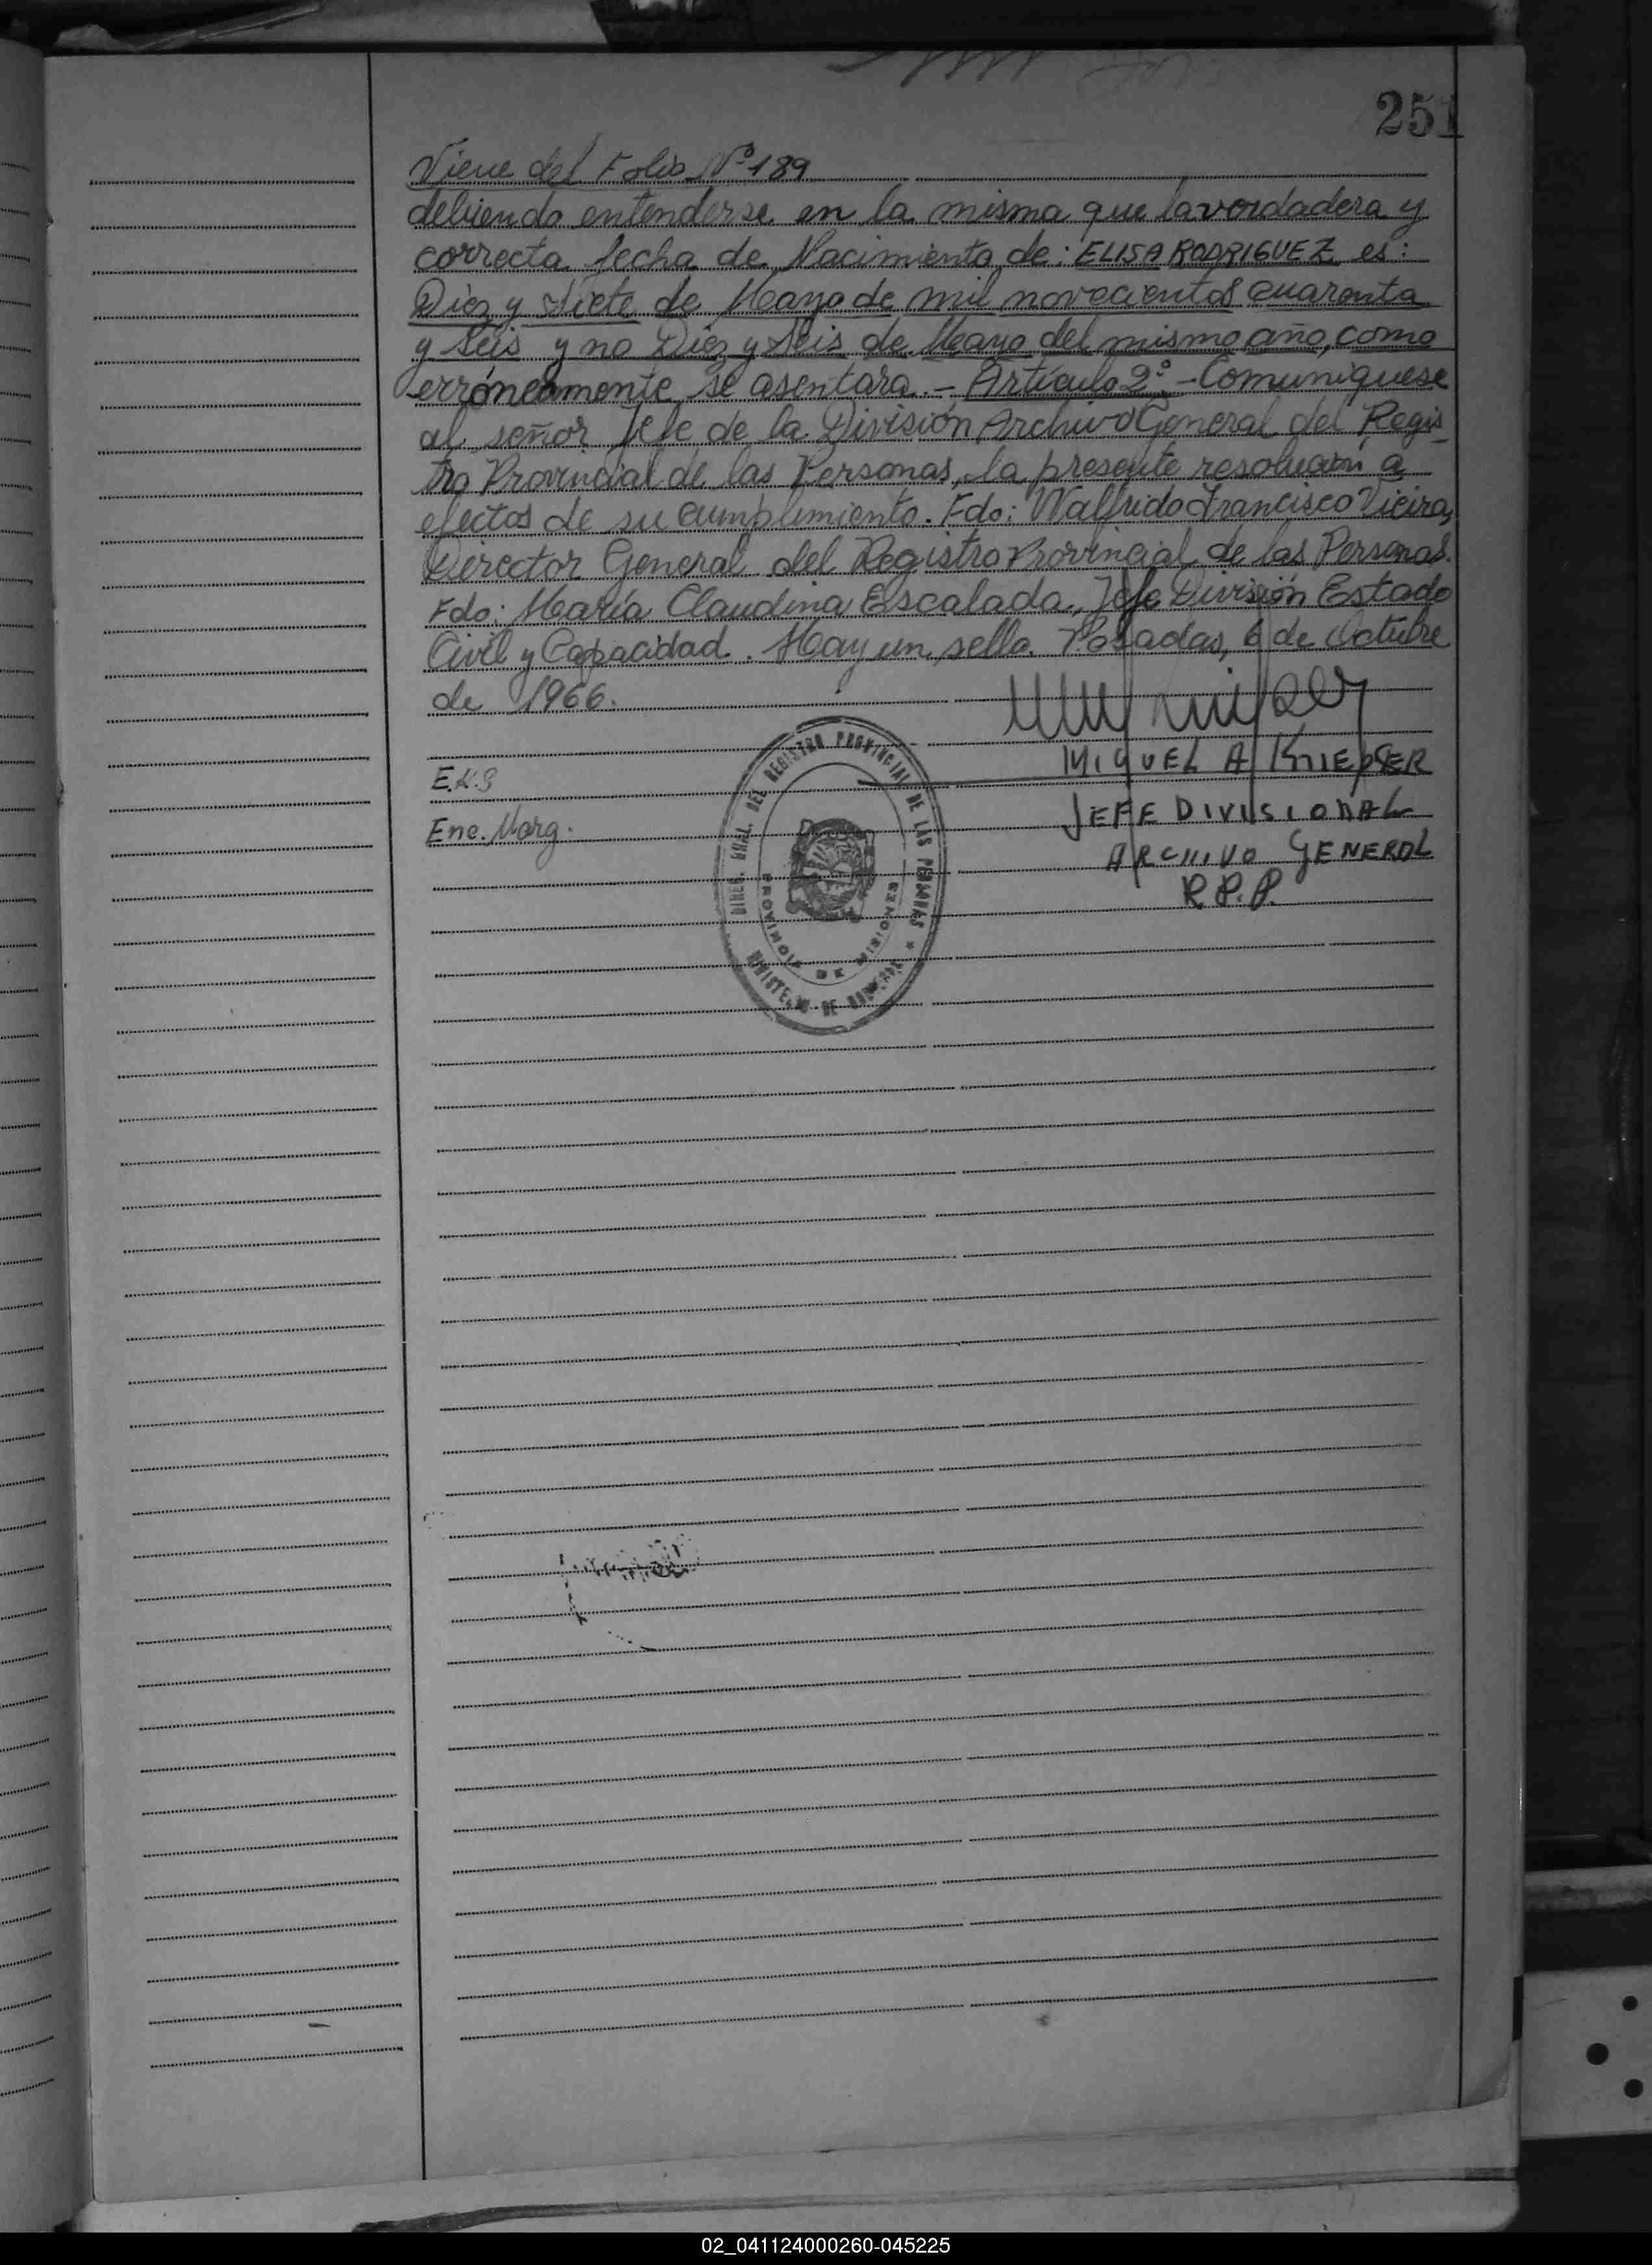 251
Viene del Folio Nº 189
debiendo entenderse en la misma que la verdadera y
correcta fecha de Nacimiento de: ELISA RODRIGUEZ es:
Diez y Siete de Mayo de mil novecientos cuarenta
y Seis y no Diez y Seis de Mayo del mismo año, como
erróneamente se asentara.- Artículo 2º.- Comuníquese
al señor Jefe de la División Archivo General del Regis-
tro Provincial de las Personas, la presente resolución a
efectos de su cumplimiento. Fdo: Walfrido Francisco Vieira,
Director General del Registro Provincial de las Personas.
Fdo: María Claudina Escalada, Jefe División Estado
Civil y Capacidad. Hay un sello. Posadas, 6 de Octubre
de 1966.
MIGUEL A
JEFE DIVISIONAL
ARCHIVO GENERAL
R.P.P.
E.K.S
Enc. Marg.
DIREC. GRAL. DEL REGISTRO PROVINCIAL DE LAS PERSONAS
MINISTERIO DE GOBIERNO
PROVINCIA DE MISIONES
02_041124000260-045225